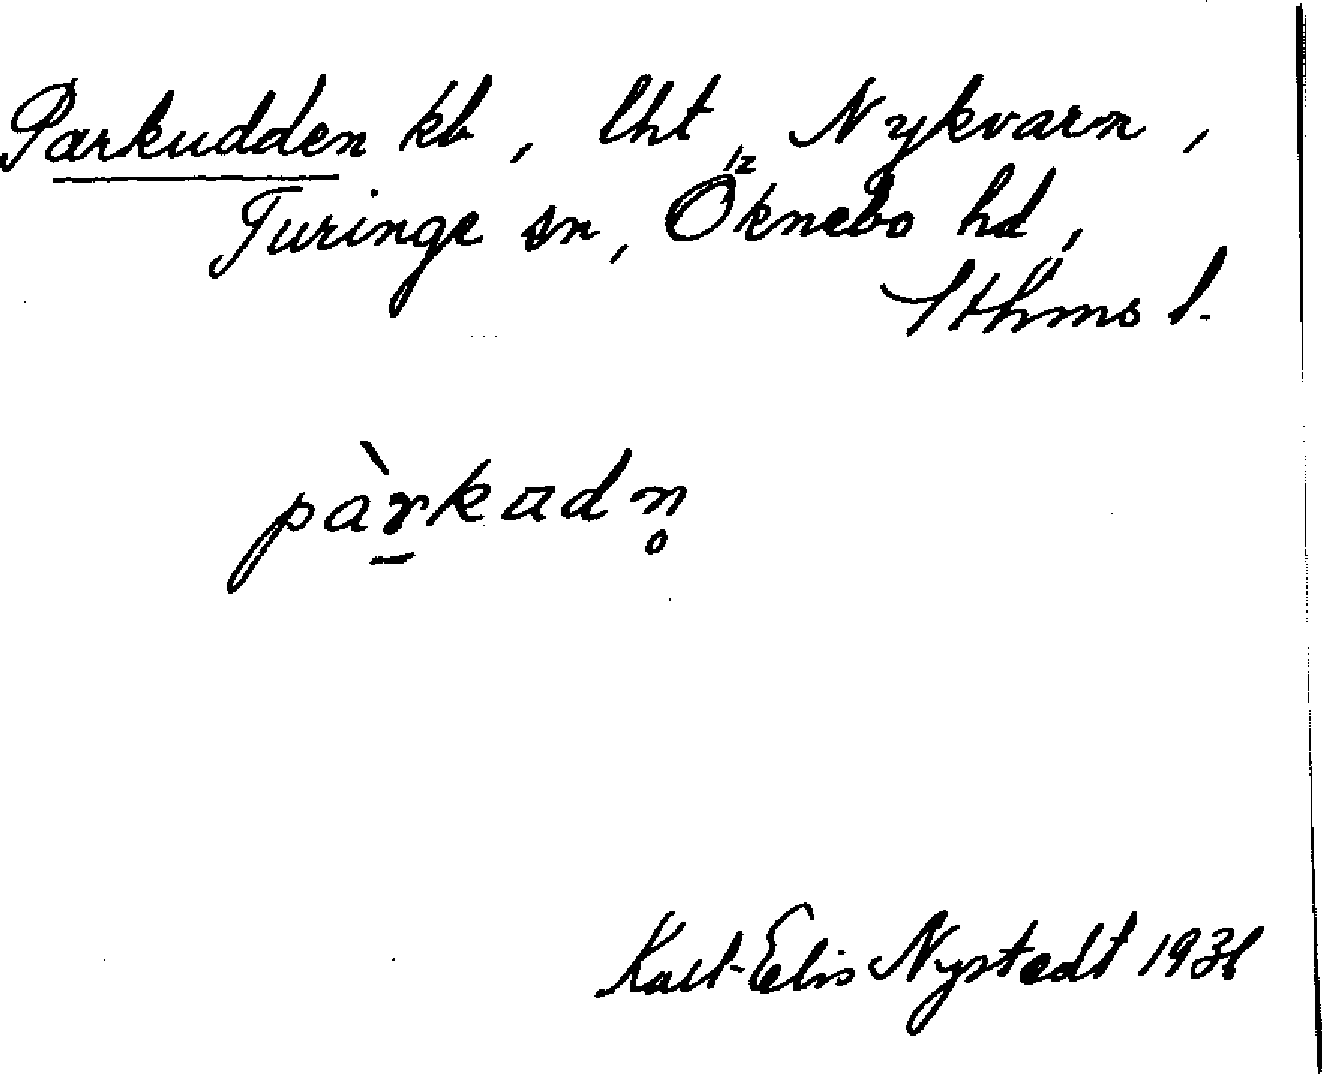 Parkudden kb, lht Nykvarn,
12
Turinge sn, Öknebo hd,
Sthms l.
pàrkudn̥
Karl-Elis Nystedt 1936